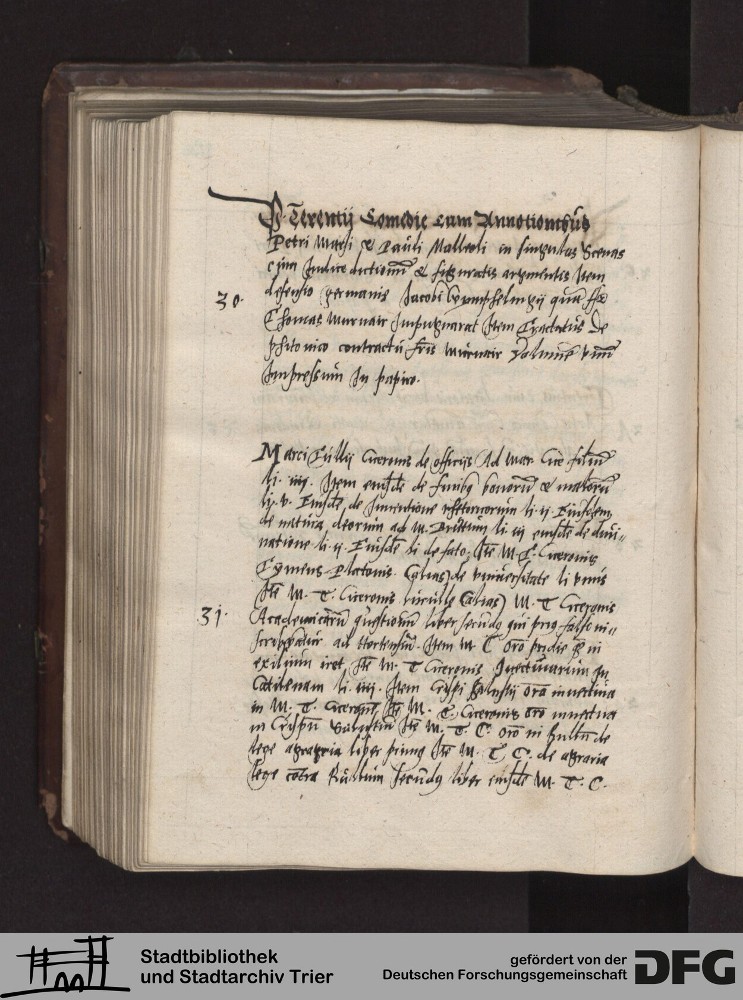 P. Terentij Comedie cum Annotionibus
Petri Marsi & Pauli Malleoli in singulas Scenas
cum Indice dictionum & figuratis argumentis Item
30. defensio germanie Jacobi quam
Thomas Murnair Impugnarat Item Tractatus De
phitonico contractu fris Murnair Volumen
Impressum In papiro.
Marci Tullij Ciceronis de officijs Ad Mar. Cice filium
li. iiij. Item eiusde de finibus bonorum & malorum
li. v. Eiusde, de Inventione rhetoricorum li. ij. Eiusdem
de natura deorum ad M. Bruttum li iij eiusde de diui-
natione li. ij. Eiusde li de fato; Ite M. T. Ciceronis
Platonis. (alias) de vniuersitate li vnus
Ite M. T. Ciceronis (alias) M. T Ciceronis
31. Academicarum questionum liber secundus qui
ad Hortensium. Item M. T. Oro pridie in
exilium iret, Ite M. T Ciceronis Inuectiuarum in
Catilenam li. iiij. Item Crispi Salustij Oro inuectiua
in M. T. Ciceronem, Ite M. T. Ciceronis Oro inuectiua
in Crispum Salustium Ite M. T. C. Oro in de
lege agraria liber primus Ite M. T. C. de agraria
lege contra Rullum secundus liber eiusde M. T. C.
Stadtbibliothek
und Stadtarchiv Trier
gefördert von der
Deutschen Forschungsgemeinschaft DFG